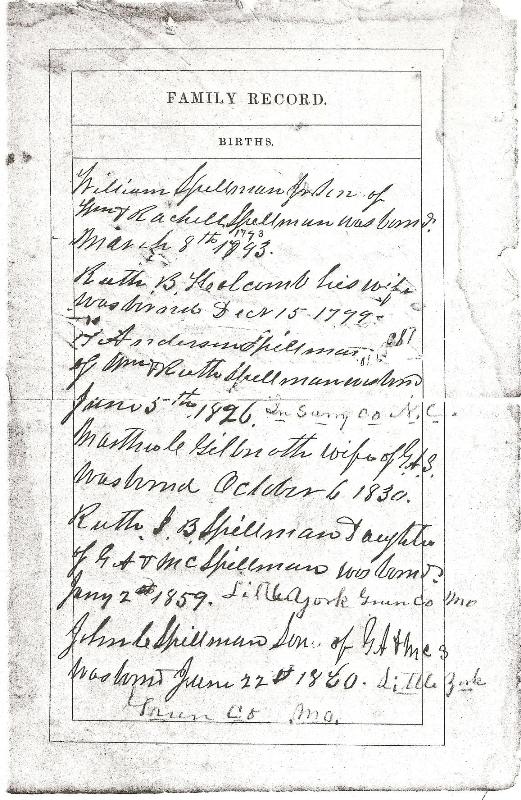 FAMILY RECORD.
BIRTHS.
William Spillman Jr Son of
Wm & Rachell Spillman was bornd
1793
March 8th 1793.
Ruth B. Holcomb his wife
was bornd Decr 15 1799
G Anderson Spillman
of Wm & Ruth Spillman was bornd
June 5th 1826. In Surry Co N.C.
Martha C Gilbreath wife of G.A.S.
was bornd October 6 1830.
Ruth J. B Spillman Daughter
of G A & M C Spillman was bornd
Jany 2nd 1859. Little York Green Co Mo
John C Spillman Son of G A & M C S
was bornd June 22d 1860. Little York
Green Co Mo.